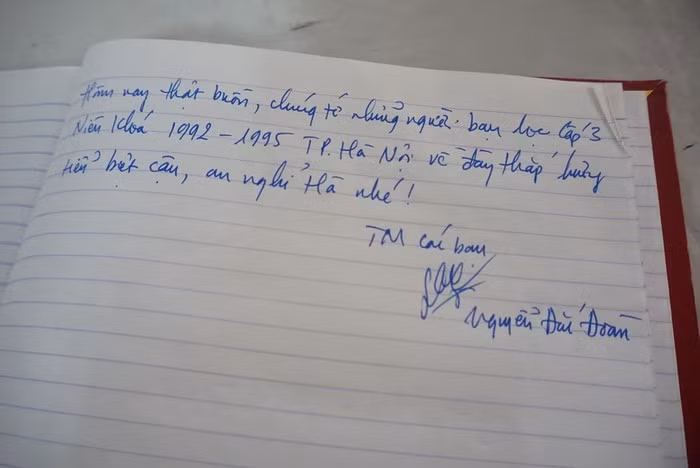 Hôm nay thật buồn, chúng tớ những người bạn học cấp 3
Niên khoá 1992 - 1995 TP. Hà Nội về đây thắp hương
tiễn biệt cậu, an nghỉ Hà nhé!
TM các bạn
Nguyễn Đức Đoàn